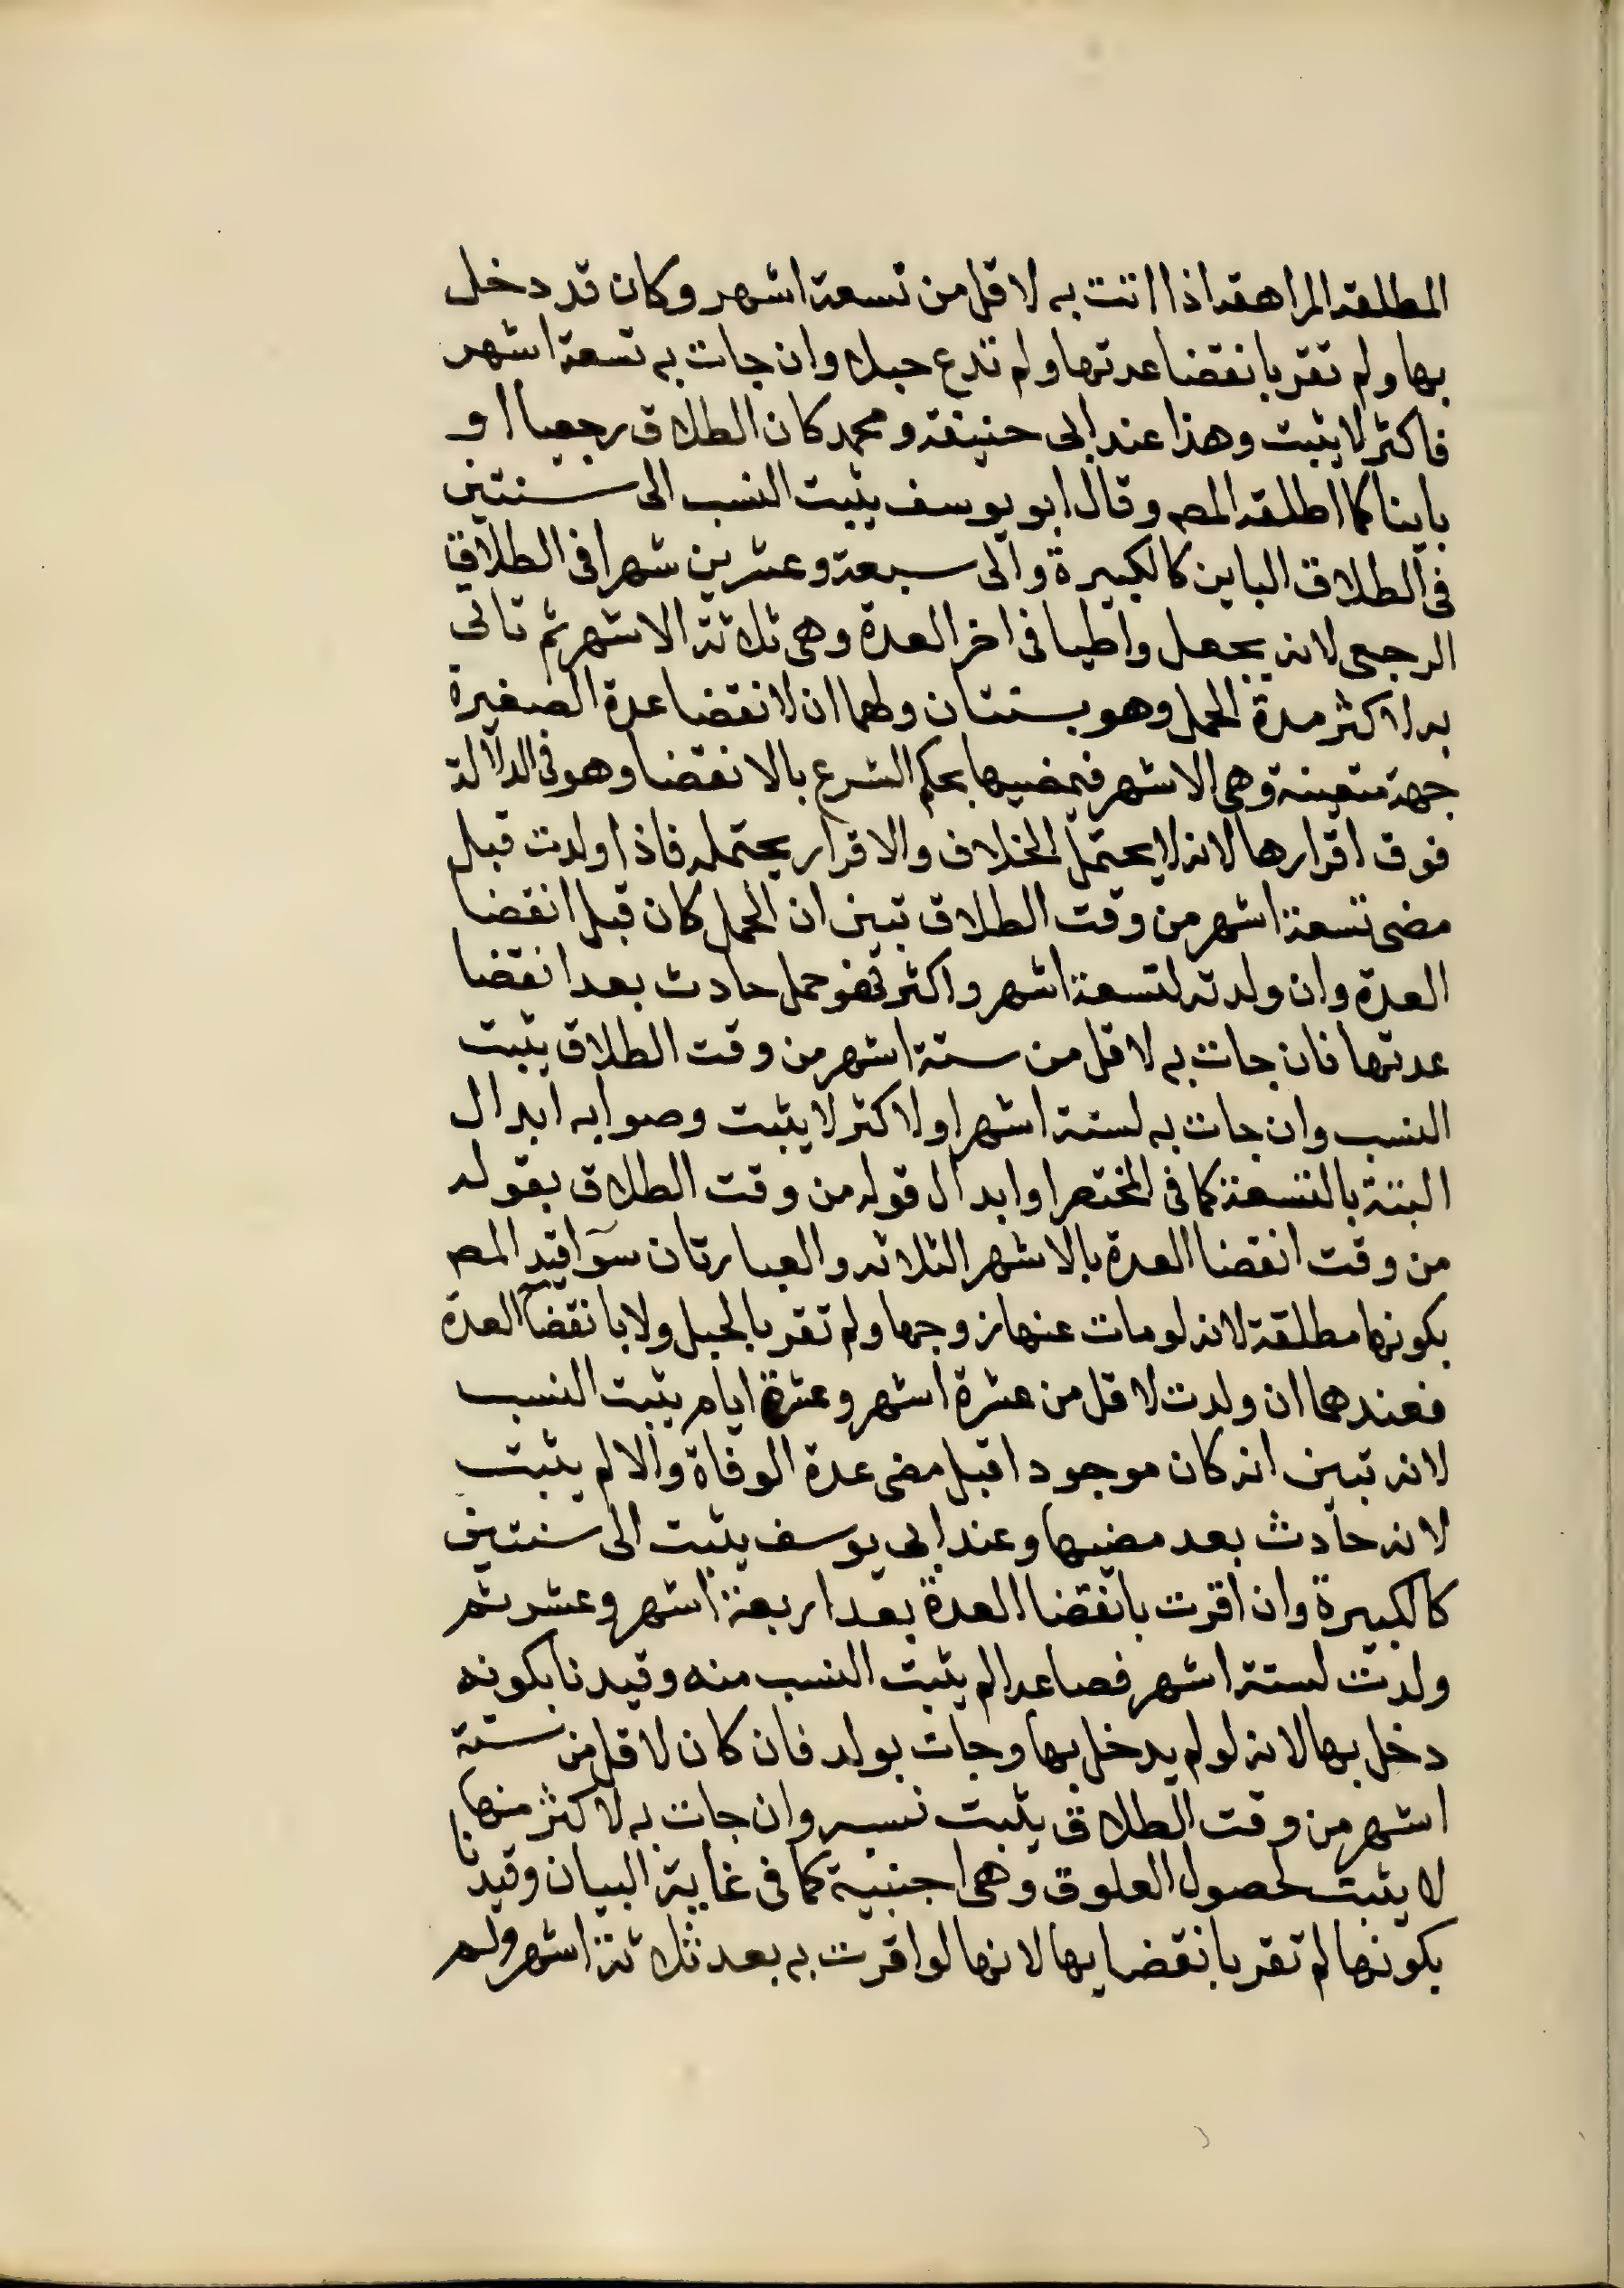 المطلقة المراهقة اذا اتت به لاقل من تسعة اشهر وكان قد دخل
بها ولم تقر بانقضا عدتها ولم تدع حبلا وان جات به تسعة اشهر
فاكثر لا يثبت وهذا عند ابى حنيفة ومحمد كان الطلاق رجعيا او
باينا كما اطلقه المص وقال ابو يوسف يثبت النسب الى سنتين
فى الطلاق الباين كالكبيرة والى سبعة وعشرين شهرا فى الطلاق
الرجعى لانه يجعل واطيا فى اخر العدة وهى ثلاثة الاشهر ثم تاتى
به لاكثر مدة الحمل وهو سنتان ولهما ان لانقضا عدة الصغيرة
جهة متعينة وهى الاشهر فبمضيها يحكم الشرع بالانقضا وهو فى الدلالة
فوق اقرارها لانه لا يحتمل الخلاف والاقرار يحتمله فاذا ولدت قبل
مضى تسعة اشهر من وقت الطلاق تبين ان الحمل كان قبل انقضا
العدة وان ولدته لتسعة اشهر واكثر فهو حمل حادث بعد انقضا
عدتها فان جات به لاقل من ستة اشهر من وقت الطلاق يثبت
النسب وان جات به لستة اشهر او لاكثر لا يثبت وصوابه ابدال
الستة بالتسعة كما فى المختصر او ابدال قوله من وقت الطلاق بقوله
من وقت انقضا العدة بالاشهر الثلاثة والعبارتان سوا قيد المص
بكونها مطلقة لانه لو مات عنها زوجها ولم تقر بالحبل ولا بانقضا العدة
فعندهما ان ولدت لاقل من عشرة اشهر وعشرة ايام يثبت النسب
لانه تبين انه كان موجودا قبل مضى عدة الوفاة والا لم يثبت
لانه حادث بعد مضيها وعند ابى يوسف يثبت الى سنتين
كالكبيرة وان اقرت بانقضا العدة بعد اربعة اشهر وعشر ثم
ولدت لستة اشهر فصاعدا لم يثبت النسب منه وقيدنا بكونه
دخل بها لانه لو لم يدخل بها وجات بولد فان كان لاقل من ستة
اشهر من وقت الطلاق يثبت نسبه وان جات به لاكثر منها
لا يثبت لحصول العلوق وهى اجنبية كما فى غاية البيان وقيدنا
بكونها لم تقر بانقضايها لانها لو اقرت به بعد ثلاثة اشهر ولم